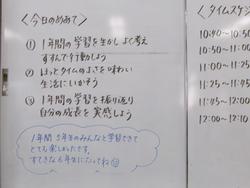 ＜今日のめあて＞
① 1年間の学習を生かし よく考え
すすんで行動しよう
② ほっとタイムのよさを味わい
生活にいかそう
③ 1年間の学習を振り返り
自分の成長を実感しよう
1年間 5年生のみんなと学習できて
とても楽しかったです。
すてきな6年生になってね
＜タイムスケジ
10:40～10:50
10:50～11:25
11:25～11:
11:25～11:45
11:45～12:00
12:00～12:10